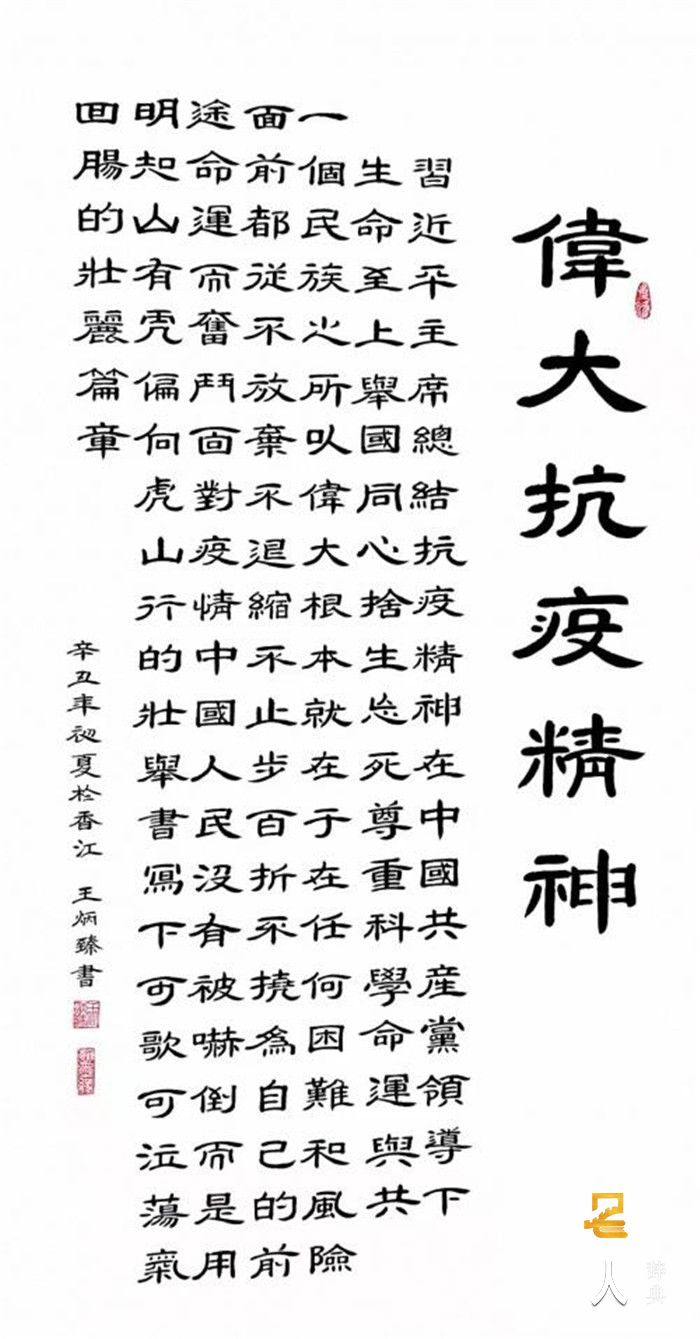 偉大抗疫精神
習近平主席總結抗疫精神在中國共産黨領導下
生命至上舉國同心捨生忘死尊重科學命運與共
一個民族之所以偉大根本就在于在任何困難和風險
面前都從不放棄不退縮不止步百折不撓為自己的前
途命運而奮鬥面對疫情中國人民没有被嚇倒而是用
明知山有虎偏向虎山行的壯舉書寫下可歌可泣蕩氣
回腸的壯麗篇章
辛丑年初夏於香江 王炳臻書
名人
辞典